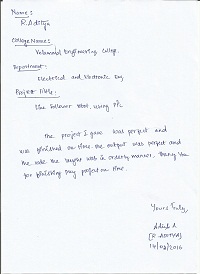 Name:
R. Aditya
College Name:
Velammal Engineering College.
Department:
Electrical and Electronic Eng
Project title:
Line follower robot, using PIC
the project I gave was perfect and
was finished on time. the output was perfect and
the code he taught was in orderly manner. Thank You
for finishing my project on time.
Yours truly,
Aditya R.
(R. ADITYA)
14/03/2016